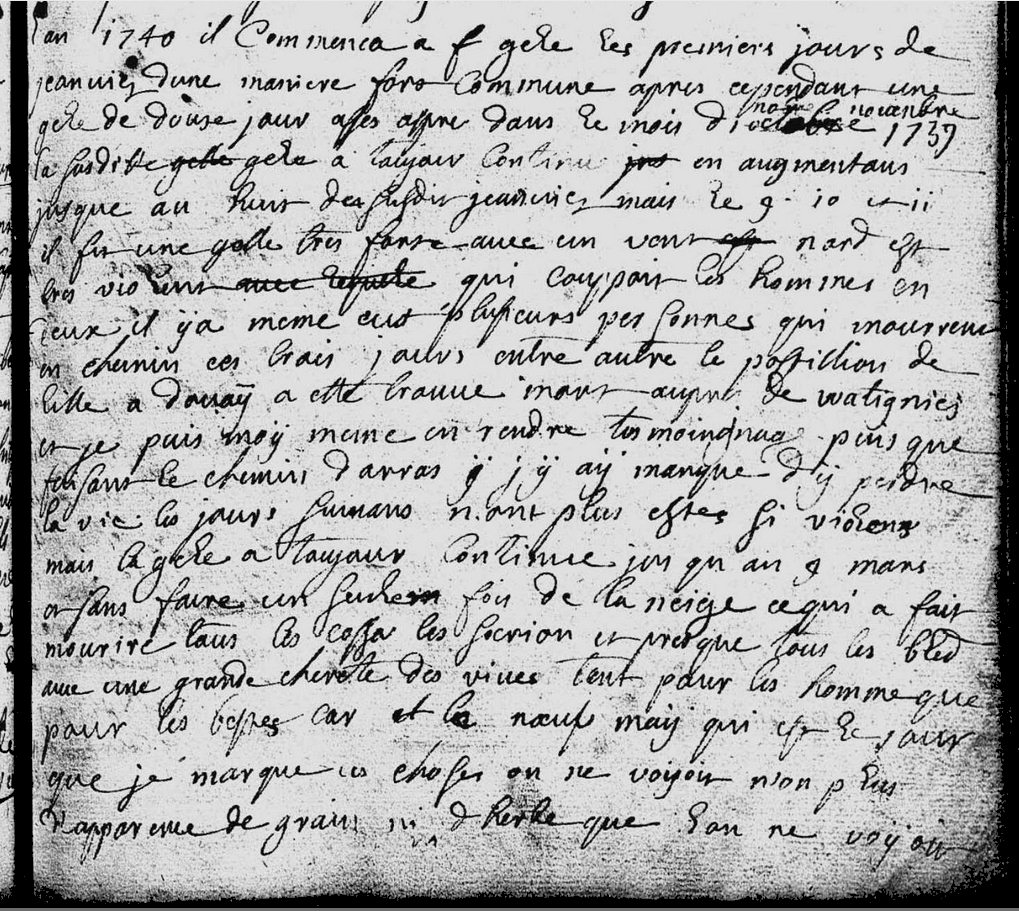 lan 1740 il Commenca a f gele les premiers jours de
jeanvier dune maniere fort Commune apres cependant une
gele de douse jour asses aspre dans le mois d octobre novembre 1739
la susditte gelle gele a toujour Continu jus en augmentans
jusque au huit des susdit jeanvier mais le 9. 10 et 11
il fit une gelle tres forte avec un vent est nord est
tres violent avec lequelle qui couppoit les hommes en
deux il ÿ a meme eut plusieurs personnes qui mourrent
en chemin ces trois jours entre autre le postillion de
lille a douaÿ a ette trouve mort aupres de watignies
et je puis moÿ meme en rendre tesmoingnage puis que
faisant le chemin d'arras ÿ j ÿ aÿ manque d'ÿ perdre
la vie les jours suivans n'ont plus estes si violens
mais la gele a toujour Continue jus qu au 9 mars
et sans faire un seulem fois de la neige ce qui a fait
mourire tous les cossa les socrion et presque tous les bled
avec une grande cherette des vivres tent pour les homme que
pour les bestes car et le neuf maÿ qui est le jour
que je marque ces choses on ne voÿoit n'on plus
d'apparence de grains ni d herbe que lon ne voÿoit